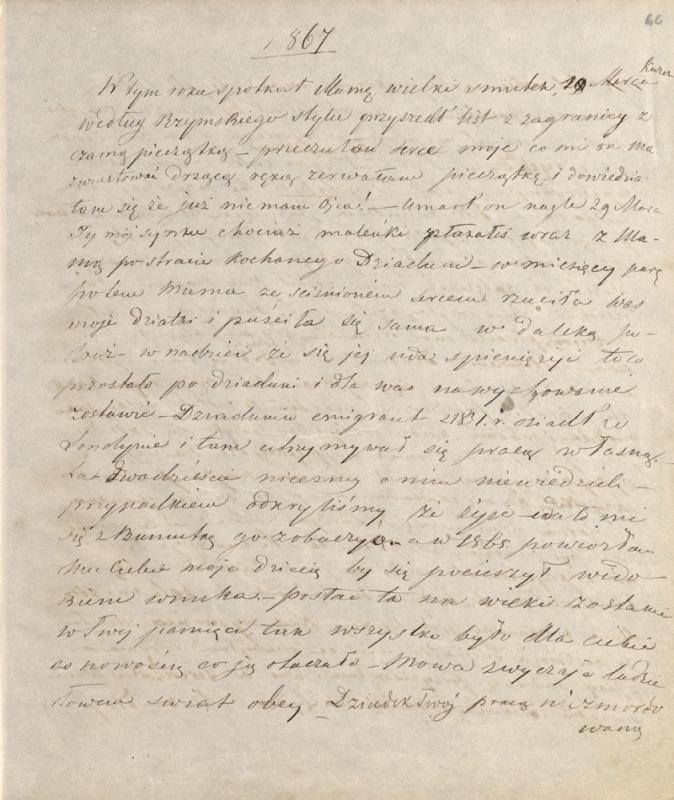 66
1867
W tym roku spotkał Mamę wielki smutek, 10 Marca
według Rzymskiego stylu przyszedł list z zagranicy z
czarną pieczątką – przeczułam serce moje co mi on ma
zwiastować drzącą ręką zerwałam pieczątkę i dowiedzia
łam się że już nie mam Ojca! – Umarł on nagle 29 Marca
Ty mój synku chociaż maleńki płakałeś wraz z Ma-
mą po stracie kochanego Dziaduni – w miesięcy parę
potem Mama ze sciśnioném sercem rzuciła was
moje dziatki i puściła się sama w daleką po-
dróż – w nadziei że się jej uda spieniężyć to co
pozostało po dziaduni i dla was na wychowanie
zostawić – Dziadunio emigrant z 1831. r. osiadł w
Londynie i tam utrzymywał się pracą własną –
Lat dwadzieścia niceśmy o nim niewiedzieli –
przypadkiem odkryliśmy że żyje – udało mi
się z go zobaczyć – a w 1865 powiozłam
mu Ciebie moje dziecię by się pocieszył wido-
kiem wnuka. – postać ta na wieki zostanie
w Twej pamięci, tak wszystko było dla ciebie
co nowością co ją otaczało – Mowa zwyczaje ludzie
słowem świat obcy – Dziadek Twój pracą zmordo
waną